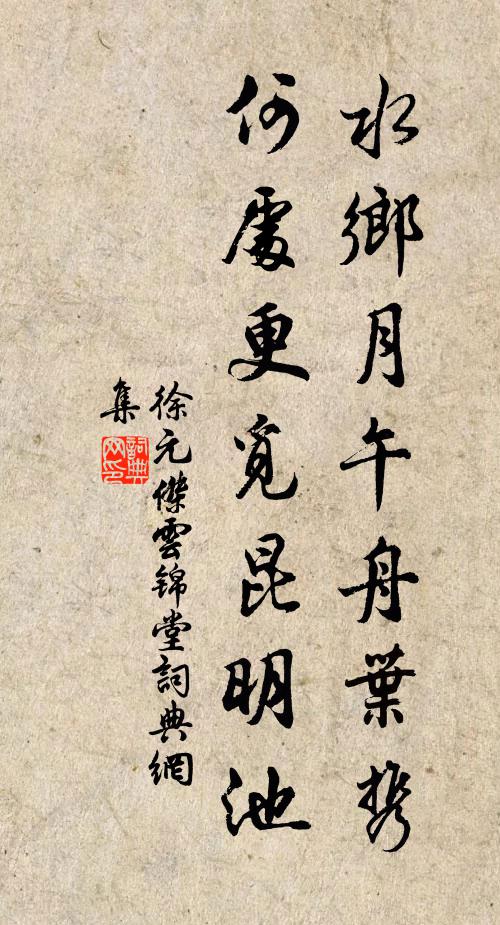 水鄉月午舟葉携
何處更覓昆明池
徐元傑雲錦堂詞典網
集
詞典網印